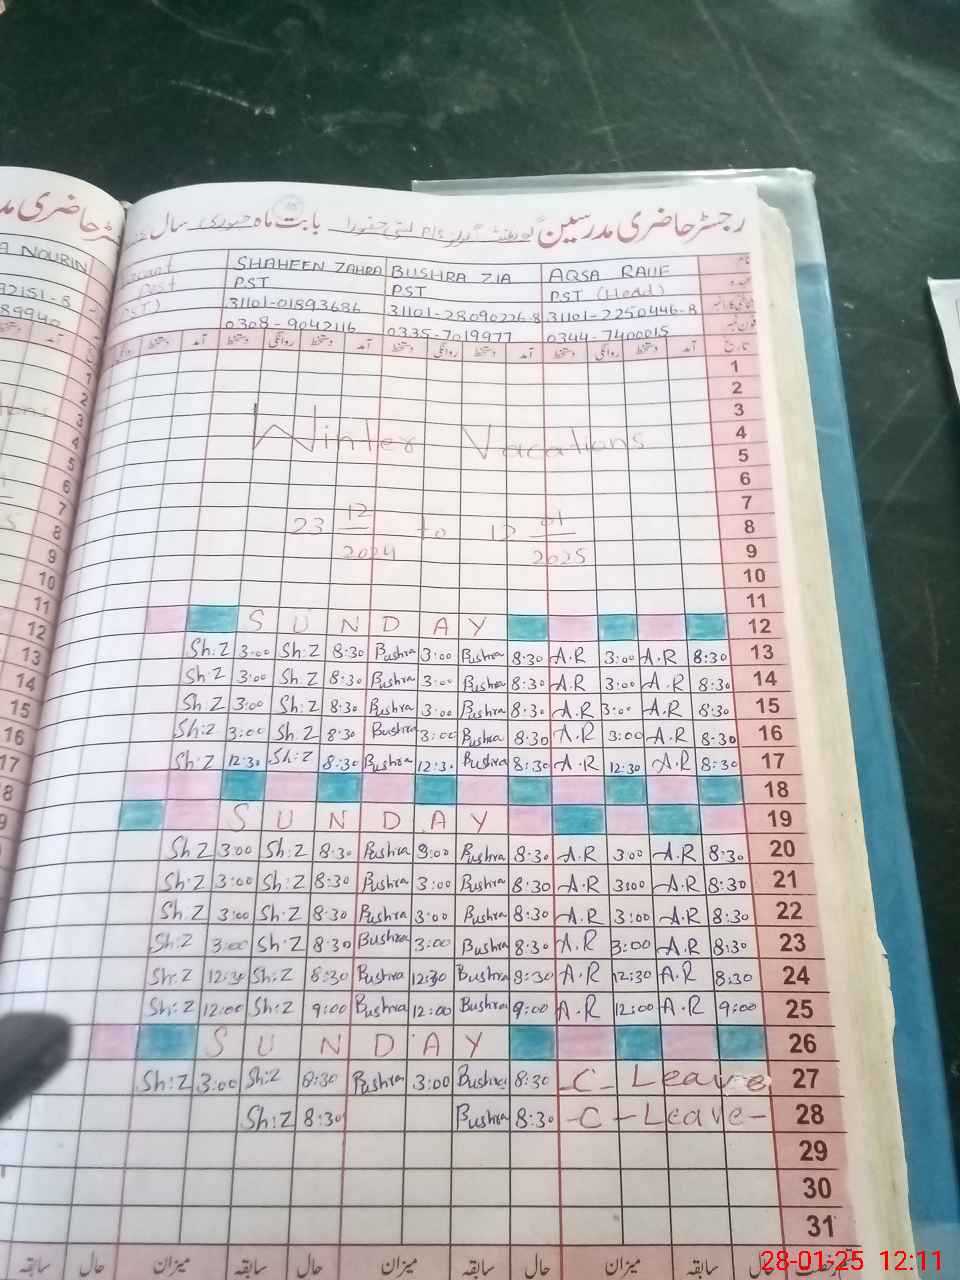 رجسٹر حاضری مدرسین بابت ماہ جنوری سال
A NOURIN SHAHEEN ZAHRA BUSHRA ZIA AQSA RAUF نام
Post PST PST PST (Head) عہدہ
92151-8 31101-01893686 31101-28090226-8 31101-2250446-8
89940 0308-9042116 0335-7019977 0344-7400015 فون نمبر
آمد دستخط روانگی دستخط آمد دستخط روانگی دستخط آمد دستخط روانگی دستخط آمد تاریخ
1
2
3
Winter Vacations 4
5
6
7
23 12/2024 to 12 01/2025 8
9
10
11
S U N D A Y 12
Sh:Z 3:00 Sh:Z 8:30 Bushra 3:00 Bushra 8:30 A.R 3:00 A.R 8:30 13
Sh:Z 3:00 Sh:Z 8:30 Bushra 3:00 Bushra 8:30 A.R 3:00 A.R 8:30 14
Sh:Z 3:00 Sh:Z 8:30 Bushra 3:00 Bushra 8:30 A.R 3:00 A.R 8:30 15
Sh:Z 3:00 Sh:Z 8:30 Bushra 3:00 Bushra 8:30 A.R 3:00 A.R 8:30 16
Sh:Z 12:30 Sh:Z 8:30 Bushra 12:3. Bushra 8:30 A.R 12:30 A.R 8:30 17
18
S U N D A Y 19
Sh:Z 3:00 Sh:Z 8:30 Bushra 3:00 Bushra 8:30 A.R 3:00 A.R 8:30 20
Sh:Z 3:00 Sh:Z 8:30 Bushra 3:00 Bushra 8:30 A.R 3:00 A.R 8:30 21
Sh:Z 3:00 Sh:Z 8:30 Bushra 3:00 Bushra 8:30 A.R 3:00 A.R 8:30 22
Sh:Z 3:00 Sh:Z 8:30 Bushra 3:00 Bushra 8:30 A.R 3:00 A.R 8:30 23
Sh:Z 12:30 Sh:Z 8:30 Bushra 12:30 Bushra 8:30 A.R 12:30 A.R 8:30 24
Sh:Z 12:00 Sh:Z 9:00 Bushra 12:00 Bushra 9:00 A.R 12:00 A.R 9:00 25
S U N D A Y 26
Sh:Z 3:00 Sh:Z 8:30 Bushra 3:00 Bushra 8:30 -C- Leave 27
Sh:Z 8:30 Bushra 8:30 -C-Leave- 28
29
30
31
سابقہ حال میزان سابقہ حال میزان سابقہ حال میزان سابقہ حال رخصت
28-01-25 12:11